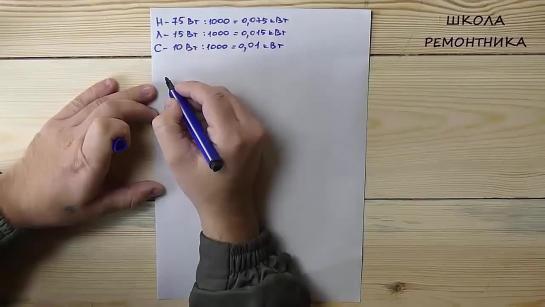 Н - 75 Вт : 1000 = 0,075 кВт
Л - 15 Вт : 1000 = 0,015 кВт
С - 10 Вт : 1000 = 0,01 кВт
ШКОЛА
РЕМОНТНИКА